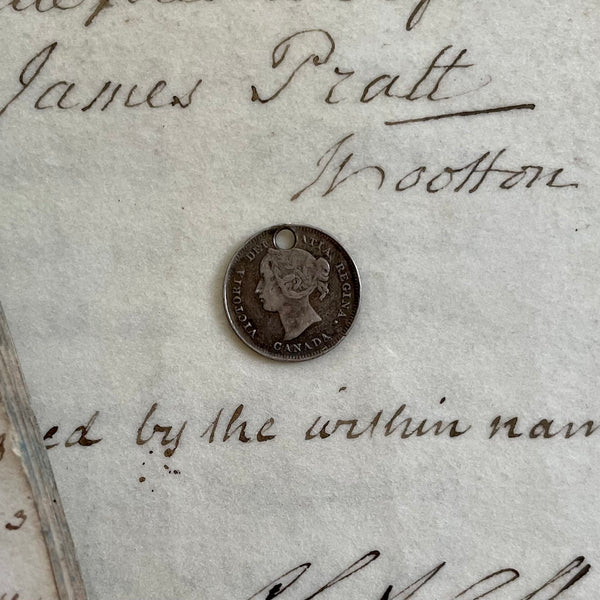 James Pratt
Wootton
VICTORIA DEI GRATIA REGINA.
CANADA
ed by the within nam
3